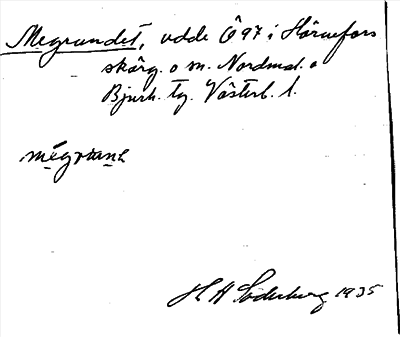 Megrundet, udde Ö 97 i Hörnefors
skärg. o m. Nordmal. o
Bjurh. tg. Västerb. l.
H A Söderberg 1935